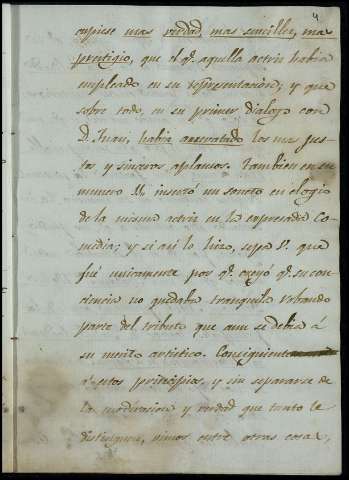 4
cupiese mas verdad, mas sencillez, mas
prestigio, que el q.e aquella actriz habia
empleado en su representacion, y que
sobre todo, en su primer dialogo con
D. Juan, habia arrevatado los mas jus-
tos y sinceros aplausos. Tambien en su
numero 11, insertó un soneto en elogio
de la misma actriz en la expresada Co-
media; y si asi lo hizo, sepa V. que
fué unicamente por q.e creyó q.e su con-
ciencia no quedaba tranquila robando
parte del tributo que aun se debia á
su merito artistico. Consiguiente
á estos principios, y sin separarse de
la moderacion y verdad que tanto le
distinguen, vimos entre otras cosas,